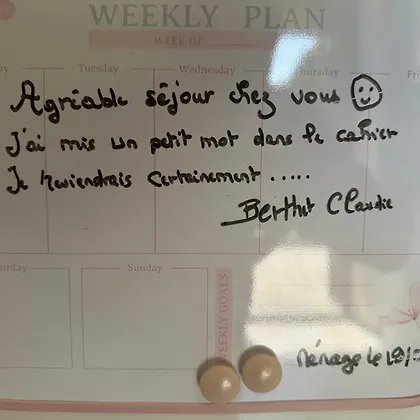 WEEKLY PLAN
WEEK OF
Tuesday
Wednesday
Thursday
Agréable séjour chez vous
J'ai mis un petit mot dans le cahier
Je reviendrais certainement .....
Berthet Claudie
Sunday
WEEKLY GOALS
Ménage le